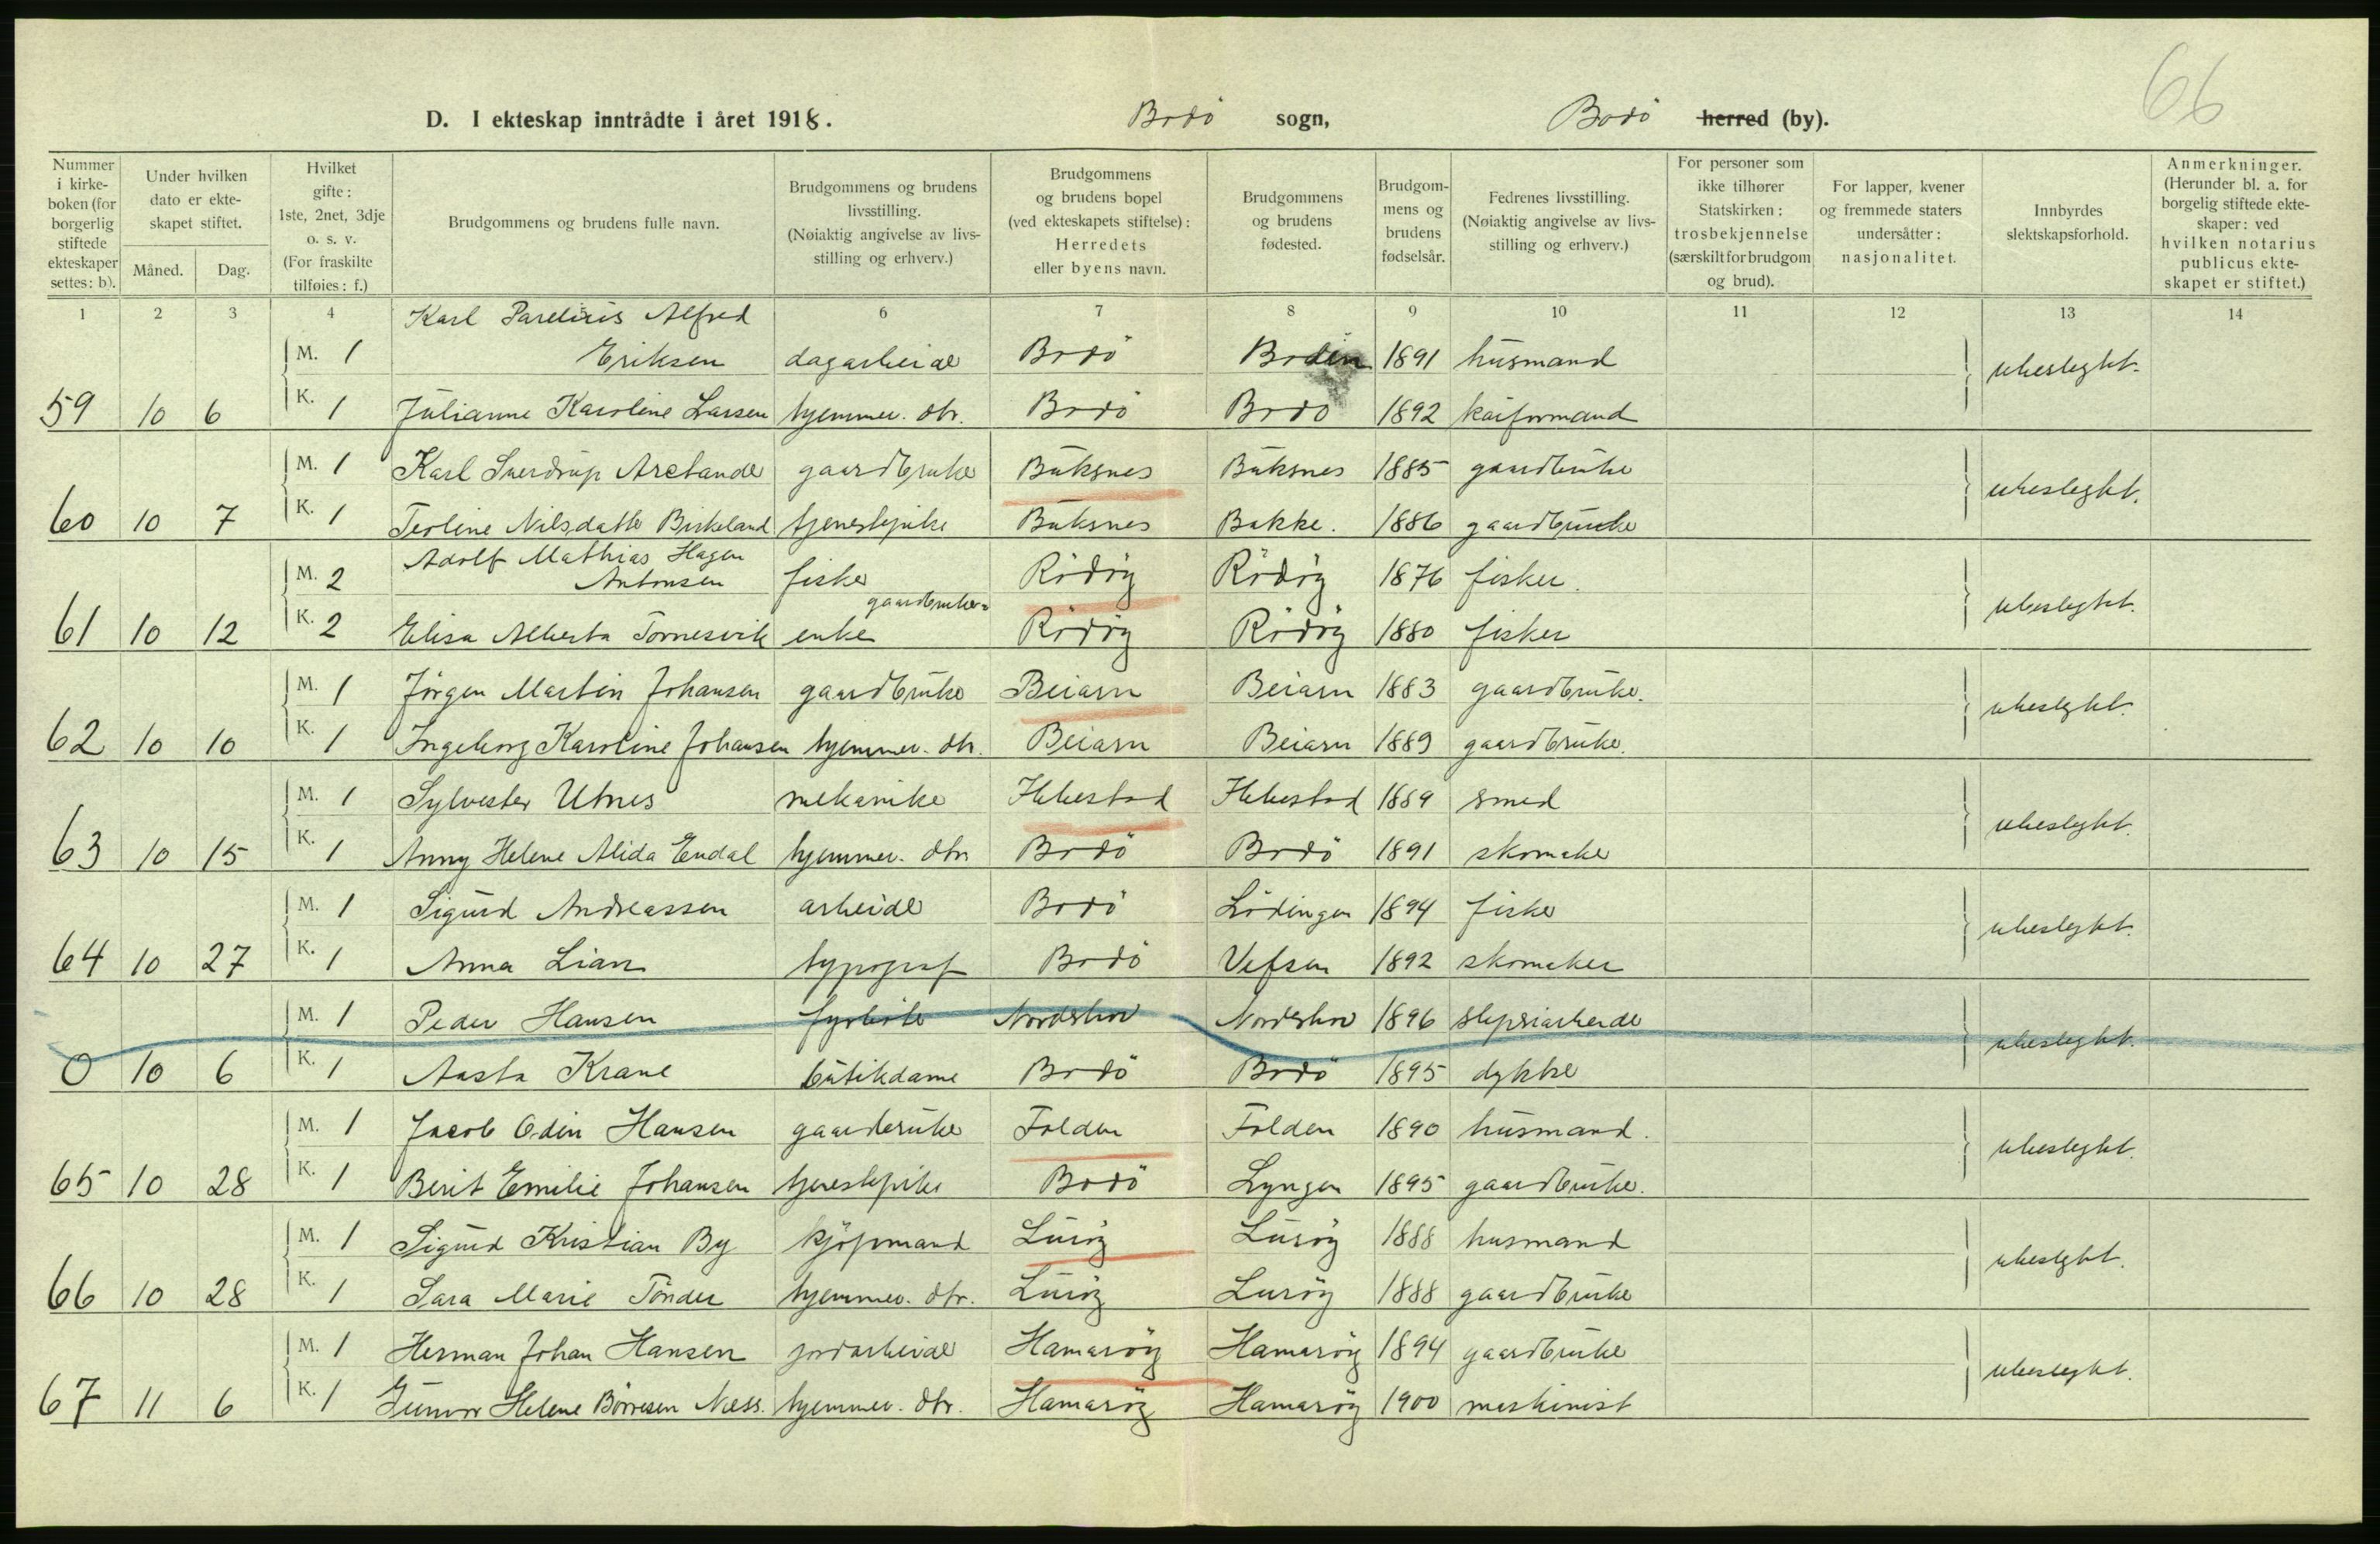 66
D. I ekteskap inntrådte i året 1918. Bodö sogn, Bodö herred (by).
Nummer i kirkeboken (for borgerlig stiftede ekteskaper settes: b).
Under hvilken dato er ekteskapet stiftet.
Måned. Dag.
Hvilket gifte: 1ste, 2net, 3dje o. s. v. (For fraskilte tilføies: f.)
Brudgommens og brudens fulle navn.
Brudgommens og brudens livsstilling. (Nøiaktig angivelse av livsstilling og erhverv.)
Brudgommens og brudens bopel (ved ekteskapets stiftelse): Herredets eller byens navn.
Brudgommens og brudens fødested.
Brudgommens og brudens fødselsår.
Fedrenes livsstilling. (Nøiaktig angivelse av livsstilling og erhverv.)
For personer som ikke tilhører Statskirken: trosbekjennelse (særskilt for brudgom og brud).
For lapper, kvener og fremmede staters undersåtter: nasjonalitet.
Innbyrdes slektskapsforhold.
Anmerkninger. (Herunder bl. a. for borgelig stiftede ekteskaper: ved hvilken notarius publicus ekteskapet er stiftet.)
1 2 3 4 6 7 8 9 10 11 12 13 14
Karl Parelius Alfred
M. 1 Eriksen dagarbeide Bodö Bodin 1891 husmand ubeslegtet.
59 10 6 K. 1 Julianne Karoline Larsen hjemmev. dtr. Bodö Bodö 1892 kaiformand
M. 1 Karl Sverdrup Arctander gaardbruke Buksnes Buksnes 1885 gaardbruke ubeslegtet.
60 10 7 K. 1 Teoline Nilsdatte Birkeland tjenestepike Buksnes Bakke. 1886 gaardbruke
Adolf Mathias Hagen
M. 2 Antonsen fisker Rödöy Rödöy 1876 fisker. ubeslegtet.
gaardbruker=
61 10 12 K. 2 Elisa Alberta Tornesvik enke Rödöy Rödöy 1880 fisker
M. 1 Jörgen Martin Johansen gaardbruke Beiarn Beiarn 1883 gaardbruke. ubeslegtet.
62 10 10 K. 1 Ingeborg Karoline Johansen hjemmev. dtr. Beiarn Beiarn 1889 gaardbruke.
M. 1 Sylvester Utnes mekanike Ibbestad Ibbestad 1889 smed ubeslegtet.
63 10 15 K. 1 Anny Helene Alida Endal hjemmev. dtr. Bodö Bodö 1891 skomake
M. 1 Sigurd Andreassen arbeide Bodö Lödingen 1894 fiske ubeslegtet.
64 10 27 K. 1 Anna Lian typograf Bodö Vefsen 1892 skomaker
M. 1 Peder Hansen fyrböte Norderhov Norderhov 1896 ubeslegtet.
0 10 6 K. 1 Aasta Krane butikdame Bodö Bodö 1895 dykke
M. 1 Jacob Odin Hansen gaardbruke Folden Folden 1890 husmand. ubeslegtet.
65 10 28 K. 1 Berit Emilie Johansen tjenestepike Bodö Lyngen 1895 gaardbruke.
M. 1 Sigurd Kristian By kjöpmand Luröy Luröy 1888 husmand ubeslegtet.
66 10 28 K. 1 Sara Marie Tönder hjemmev. dtr. Luröy Luröy 1888 gaardbruke
M. 1 Herman Johan Hansen jordarbeide Hamaröy Hamaröy 1894 gaardbruke ubeslegtet.
67 11 6 K. 1 Gunvor Helene Börresen Næss. hjemmev. dtr. Hamaröy Hamaröy 1900 maskinist